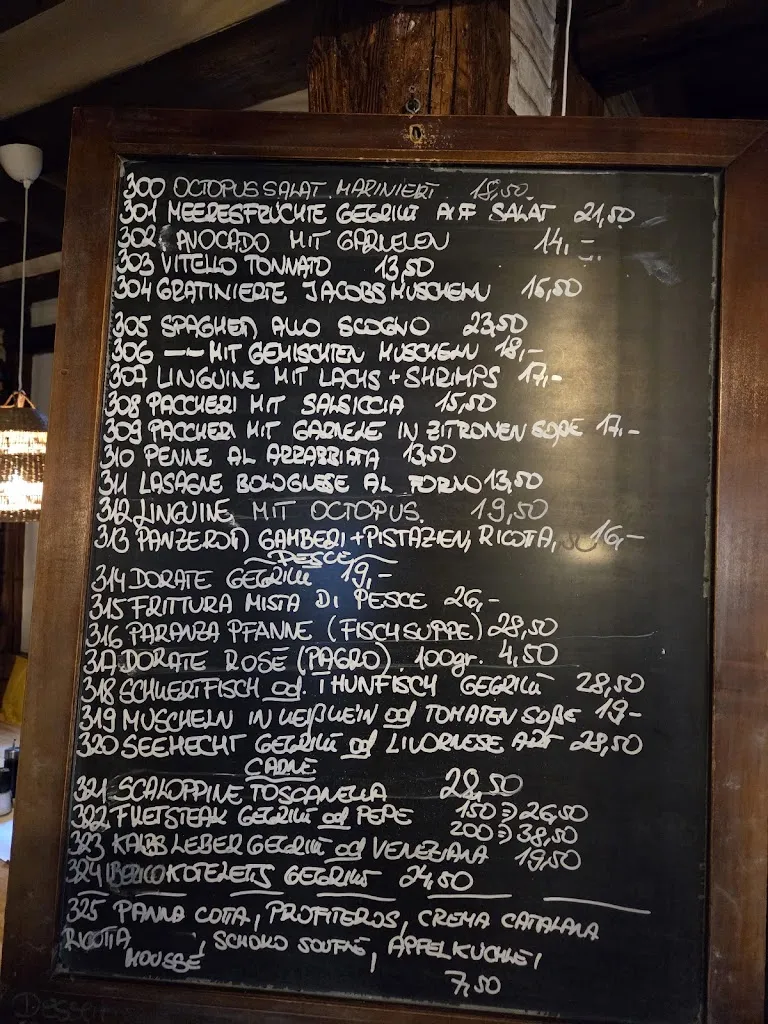 300 OCTOPUS SALAT MARINIERT 18,50
301 MEERESFRÜCHTE GEGRILLT AUF SALAT 21,50
302 AVOCADO MIT GARNELEN 14,-
303 VITELLO TONNATO 13,50
304 GRATINIERTE JACOBSMUSCHELN 16,50
305 SPAGHETTI ALLO SCOGNO 23,50
306 — MIT GEMISCHTEN MUSCHELN 18,-
307 LINGUINE MIT LACHS + SHRIMPS 17,-
308 PACCHERI MIT SALSICCIA 15,50
309 PACCHERI MIT GARNELE IN ZITRONEN SOßE 17,-
310 PENNE AL ARRABBIATA 13,50
311 LASAGNE BOLOGNESE AL FORNO 13,50
312 LINGUINE MIT OCTOPUS. 19,50
313 PANZEROTTI GAMBERI + PISTAZIEN, RICOTTA, 16,-
PESCE
314 DORATE GEGRILLT 19,-
315 FRITTURA MISTA DI PESCE 26,-
316 PARANZA PFANNE (FISCHSUPPE) 28,50
317 DORATE ROSÉ (PAGRO). 100gr. 4,50
318 SCHWERTFISCH od. THUNFISCH GEGRILLT 28,50
319 MUSCHELN IN WEIßWEIN od TOMATEN SOßE 19,-
320 SEEHECHT GEGRILLT od LIVORNESE ART 28,50
CARNE
321 SCALOPPINE TOSCANELLA 20,50
322 FILETSTEAK GEGRILLT od PEPE 150 => 26,50
200 => 38,50
323 KALBSLEBER GEGRILLT od VENEZIANA 19,50
324 IBERICO KOTELETTS GEGRILLT 24,50
325 PANNA COTTA, PROFITEROS, CREMA CATALANA
RICOTTA MOUSSE, SCHOKO SOUFLÉ, APFELKUCHLE,
7,50
Dessert